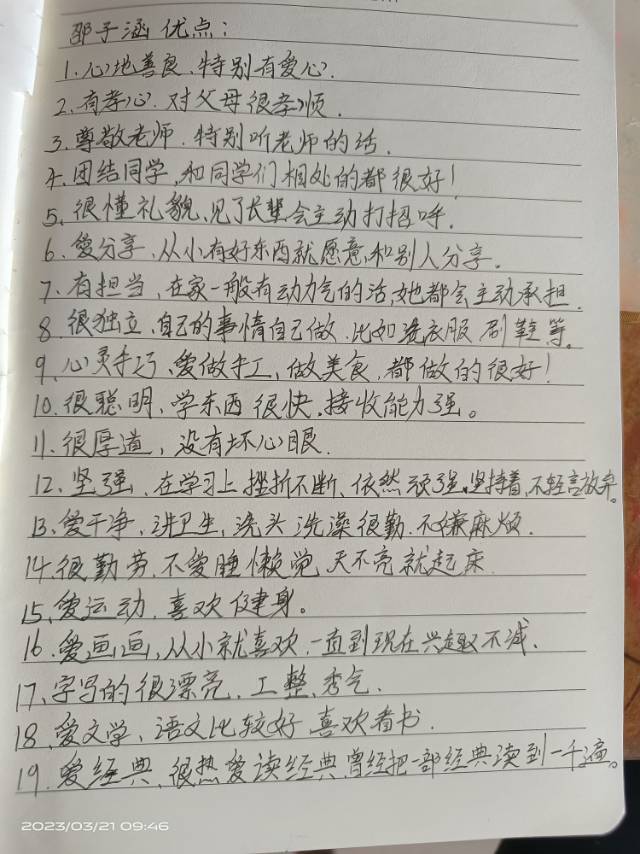 邵子涵优点：
1.心地善良、特别有爱心.
2.有孝心.对父母很孝顺.
3.尊敬老师.特别听老师的话.
4.团结同学,和同学们相处的都很好！
5、很懂礼貌,见了长辈会主动打招呼.
6.爱分享、从小有好东西就愿意和别人分享.
7、有担当,在家一般有动力气的活,她都会主动承担.
8.很独立、自己的事情自己做.比如洗衣服刷鞋等。
9、心灵手巧、爱做手工、做美食,都做的很好！
10.很聪明、学东西很快.接收能力强。
11.很厚道,没有坏心眼.
12、坚强、在学习上挫折不断、依然顽强.坚持着,不轻言放弃。
13、爱干净,讲卫生,洗头洗澡很勤.不嫌麻烦.
14.很勤劳,不爱睡懒觉,天不亮就起床.
15、爱运动,喜欢健身。
16、爱画画,从小就喜欢,一直到现在兴趣不减.
17、字写的很漂亮、工整、秀气.
18、爱文学、语文比较好,喜欢看书.
19、爱经典、很热爱读经典,曾经把一部经典读到一千遍。
2023/03/21 09:46